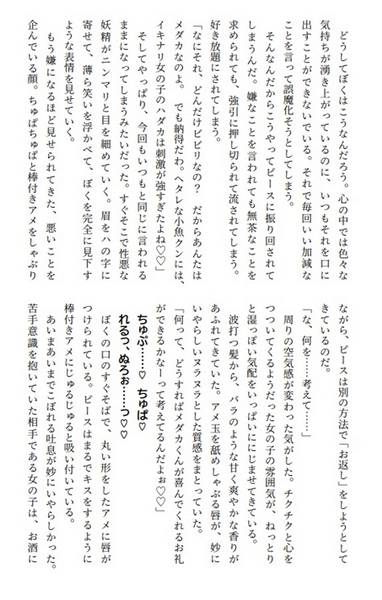 どうしてぼくはこうなんだろう。心の中では色々な
気持ちが湧き上がっているのに、いつもそれを口に
出すことができないでいる。それで毎回いい加減な
ことを言って誤魔化そうとしてしまう。
そんなんだからこうやってピースに振り回されて
しまうんだ。嫌なことを言われても無茶なことを
求められても、強引に押し切られて流されてしまう。
好き放題にされてしまう。
「なにそれ、どんだけビビリなの？ だからあんたは
メダカなのよ。 でも納得だわ。ヘタレな小魚クンには、
イキナリ女の子のハダカは刺激が強すぎたよね♡♡」
そしてやっぱり、今回もいつもと同じに言われる
ままになってしまうみたいだった。すぐそこで性悪な
妖精がニンマリと目を細めていく。眉をハの字に
寄せて、薄ら笑いを浮かべて、ぼくを完全に見下す
ような表情を見せていく。
もう嫌になるほど見せられてきた、悪いことを
企んでいる顔。ちゅぱちゅぱと棒付きアメをしゃぶり
ながら、ピースは別の方法で「お返し」をしようとして
きているのだ。
「な、何を……考えて……」
周りの空気感が変わった気がした。チクチクと心を
つついてくるようだった女の子の雰囲気が、ねっとり
と湿っぽい気配をいっぱいににじませてきている。
波打つ髪から、バラのような甘く爽やかな香りが
あふれてきていた。アメ玉を舐めしゃぶる唇が、妙に
いやらしいヌラヌラとした質感をまとっていた。
「何って、どうすればメダカくんが喜んでくれるお礼
ができるかなーって考えてるんだよぉ♡♡」
ちゅぷ……♡ ちゅぱ♡
れるっ、ぬろぉ……っ♡
ぼくの口のすぐそばで、丸い形をしたアメに唇が
つけられている。ピースはまるでキスをするように
棒付きアメにじゅるじゅると吸い付いている。
あいまあいまでこぼれる吐息が妙にいやらしかった。
苦手意識を抱いていた相手である女の子は、お酒に